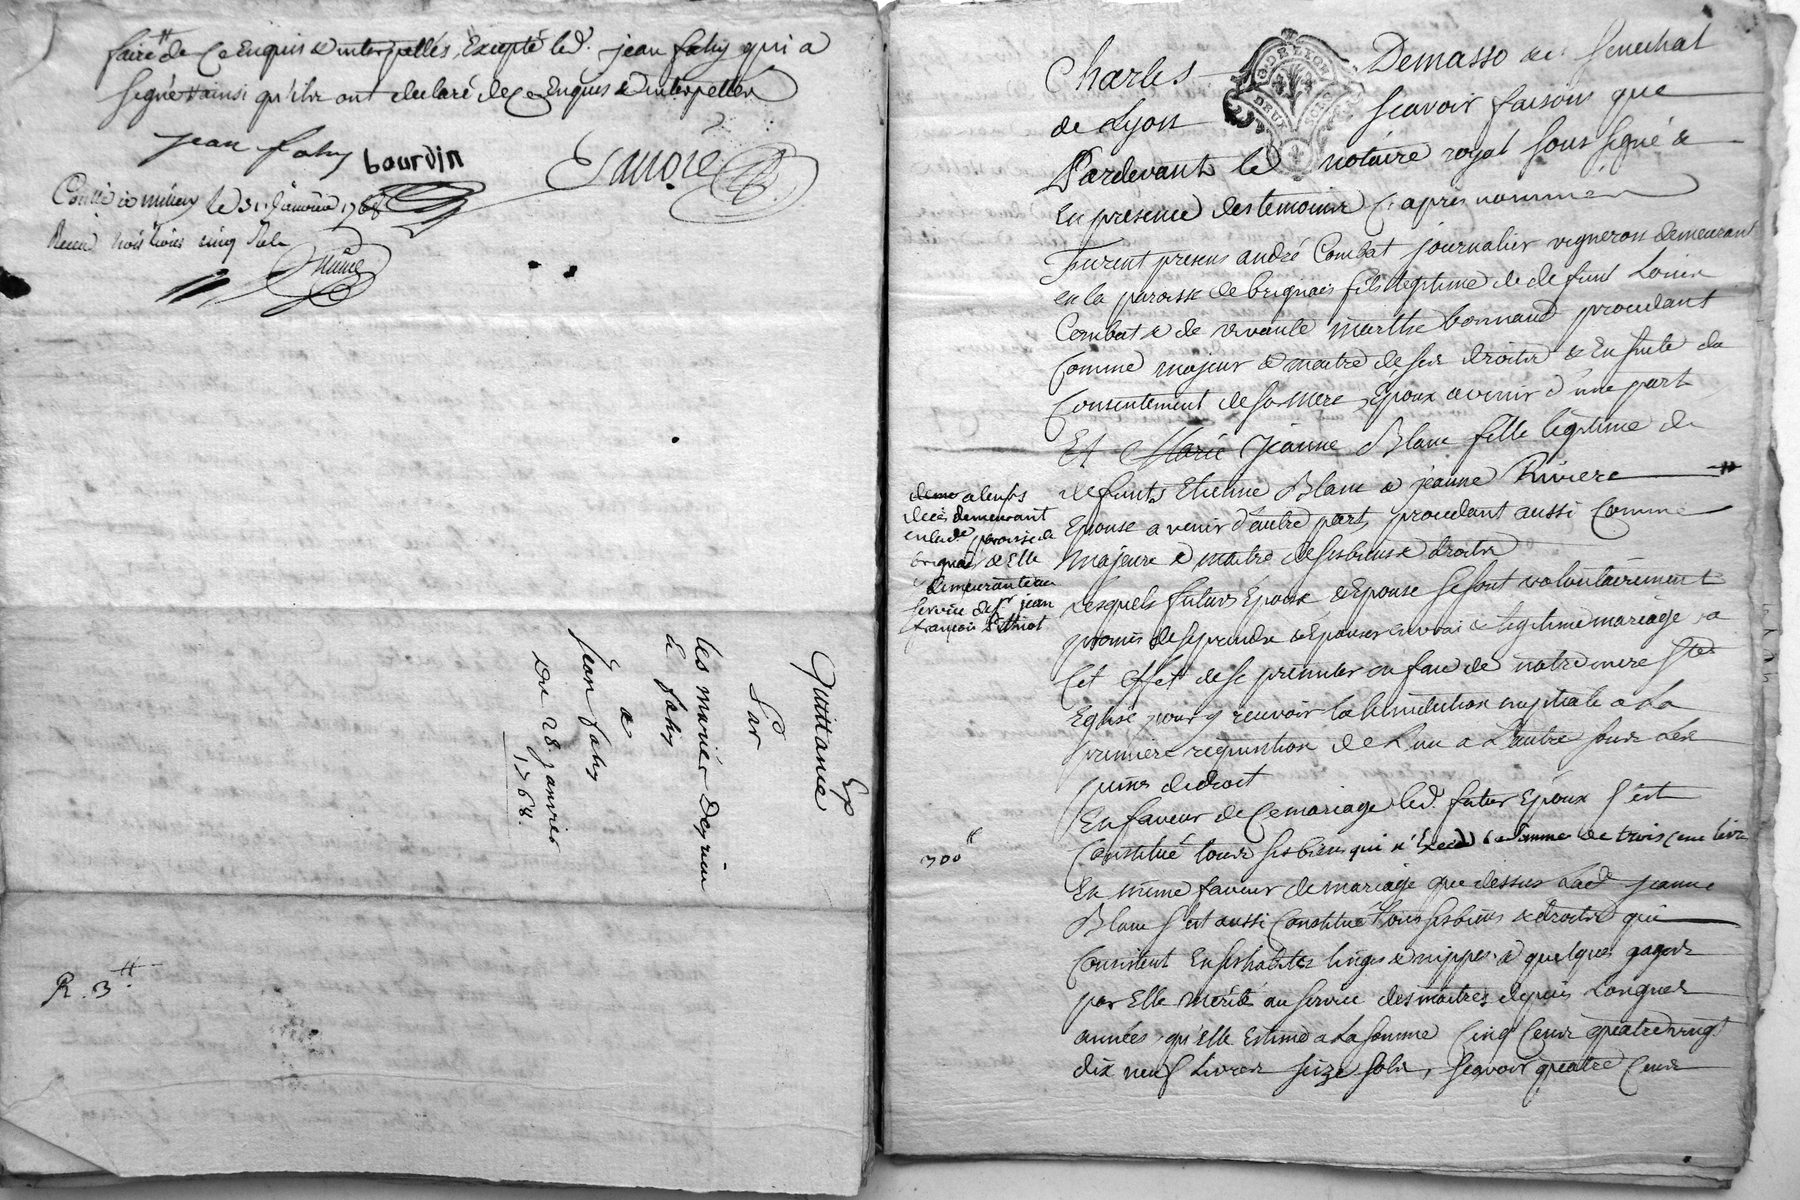 faire de ce enquis & interpellés, Excepté led. jean fahy qui a
signé ainsi qu'ils ont declaré de ce Enquis & interpellés
jean fahy bourdin
Conllé a millery le 31 janvier 1768
Recu trois livres cinq sols
Quittance
Par
les mariés
& fahy
a
Jean fahy
Du 28 janvier
1768.
Exp
R. 3.tt
Charles Demasso de Senechal
de Lyon Scavoir faisons que
Pardevant le notaire royal sous signé &
En presence des temoins Ci après nommés
Furent presens andré Combat journalier vigneron demeurant
en la paroisse de brignais fils legitime de defunt Louis
Combat & de vivante marthe bonnand procedant
Comme majeur & maitre de ses droits & En suite du
Consentement de sa mere, Epoux avenir d'une part
Et Marie Jeanne Blanc fille legitime de
defunts Etienne Blanc & jeanne Riviere
Epouse a venir d'autre part, procedant aussi Comme
majeure & maitre de ses biens & droits
a leurs
deces demeurant
en lad. paroisse de
brignais & Elle
demeurante au
service de sr. jean
françois
Lesquels futurs Epoux & Epouse se sont volontairement
promis de se prendre & Epouser en vrai & legitime mariage, a
Cet Effet de se presenter en face de notre mere Ste.
Eglise pour y recevoir la benediction nuptiale a La
premiere requisition de L'un a L'autre sous Les
peines de droit
En faveur de Ce mariage led. futur Epoux s'est
Constitué tous ses biens qui n'Excede la somme de trois cent livres
300tt
En meme faveur de mariage que dessus Lad. jeanne
Blanc s'est aussi Constitué tous ses biens & droits qui
Consistent En ses habits linges & nippes, & quelques gages
par Elle merité au service des maitres depuis Longues
années, qu'Elle Estime a La somme Cinq Cens quatre vingt
dix neuf Livres seize sols, scavoir quatre Cens